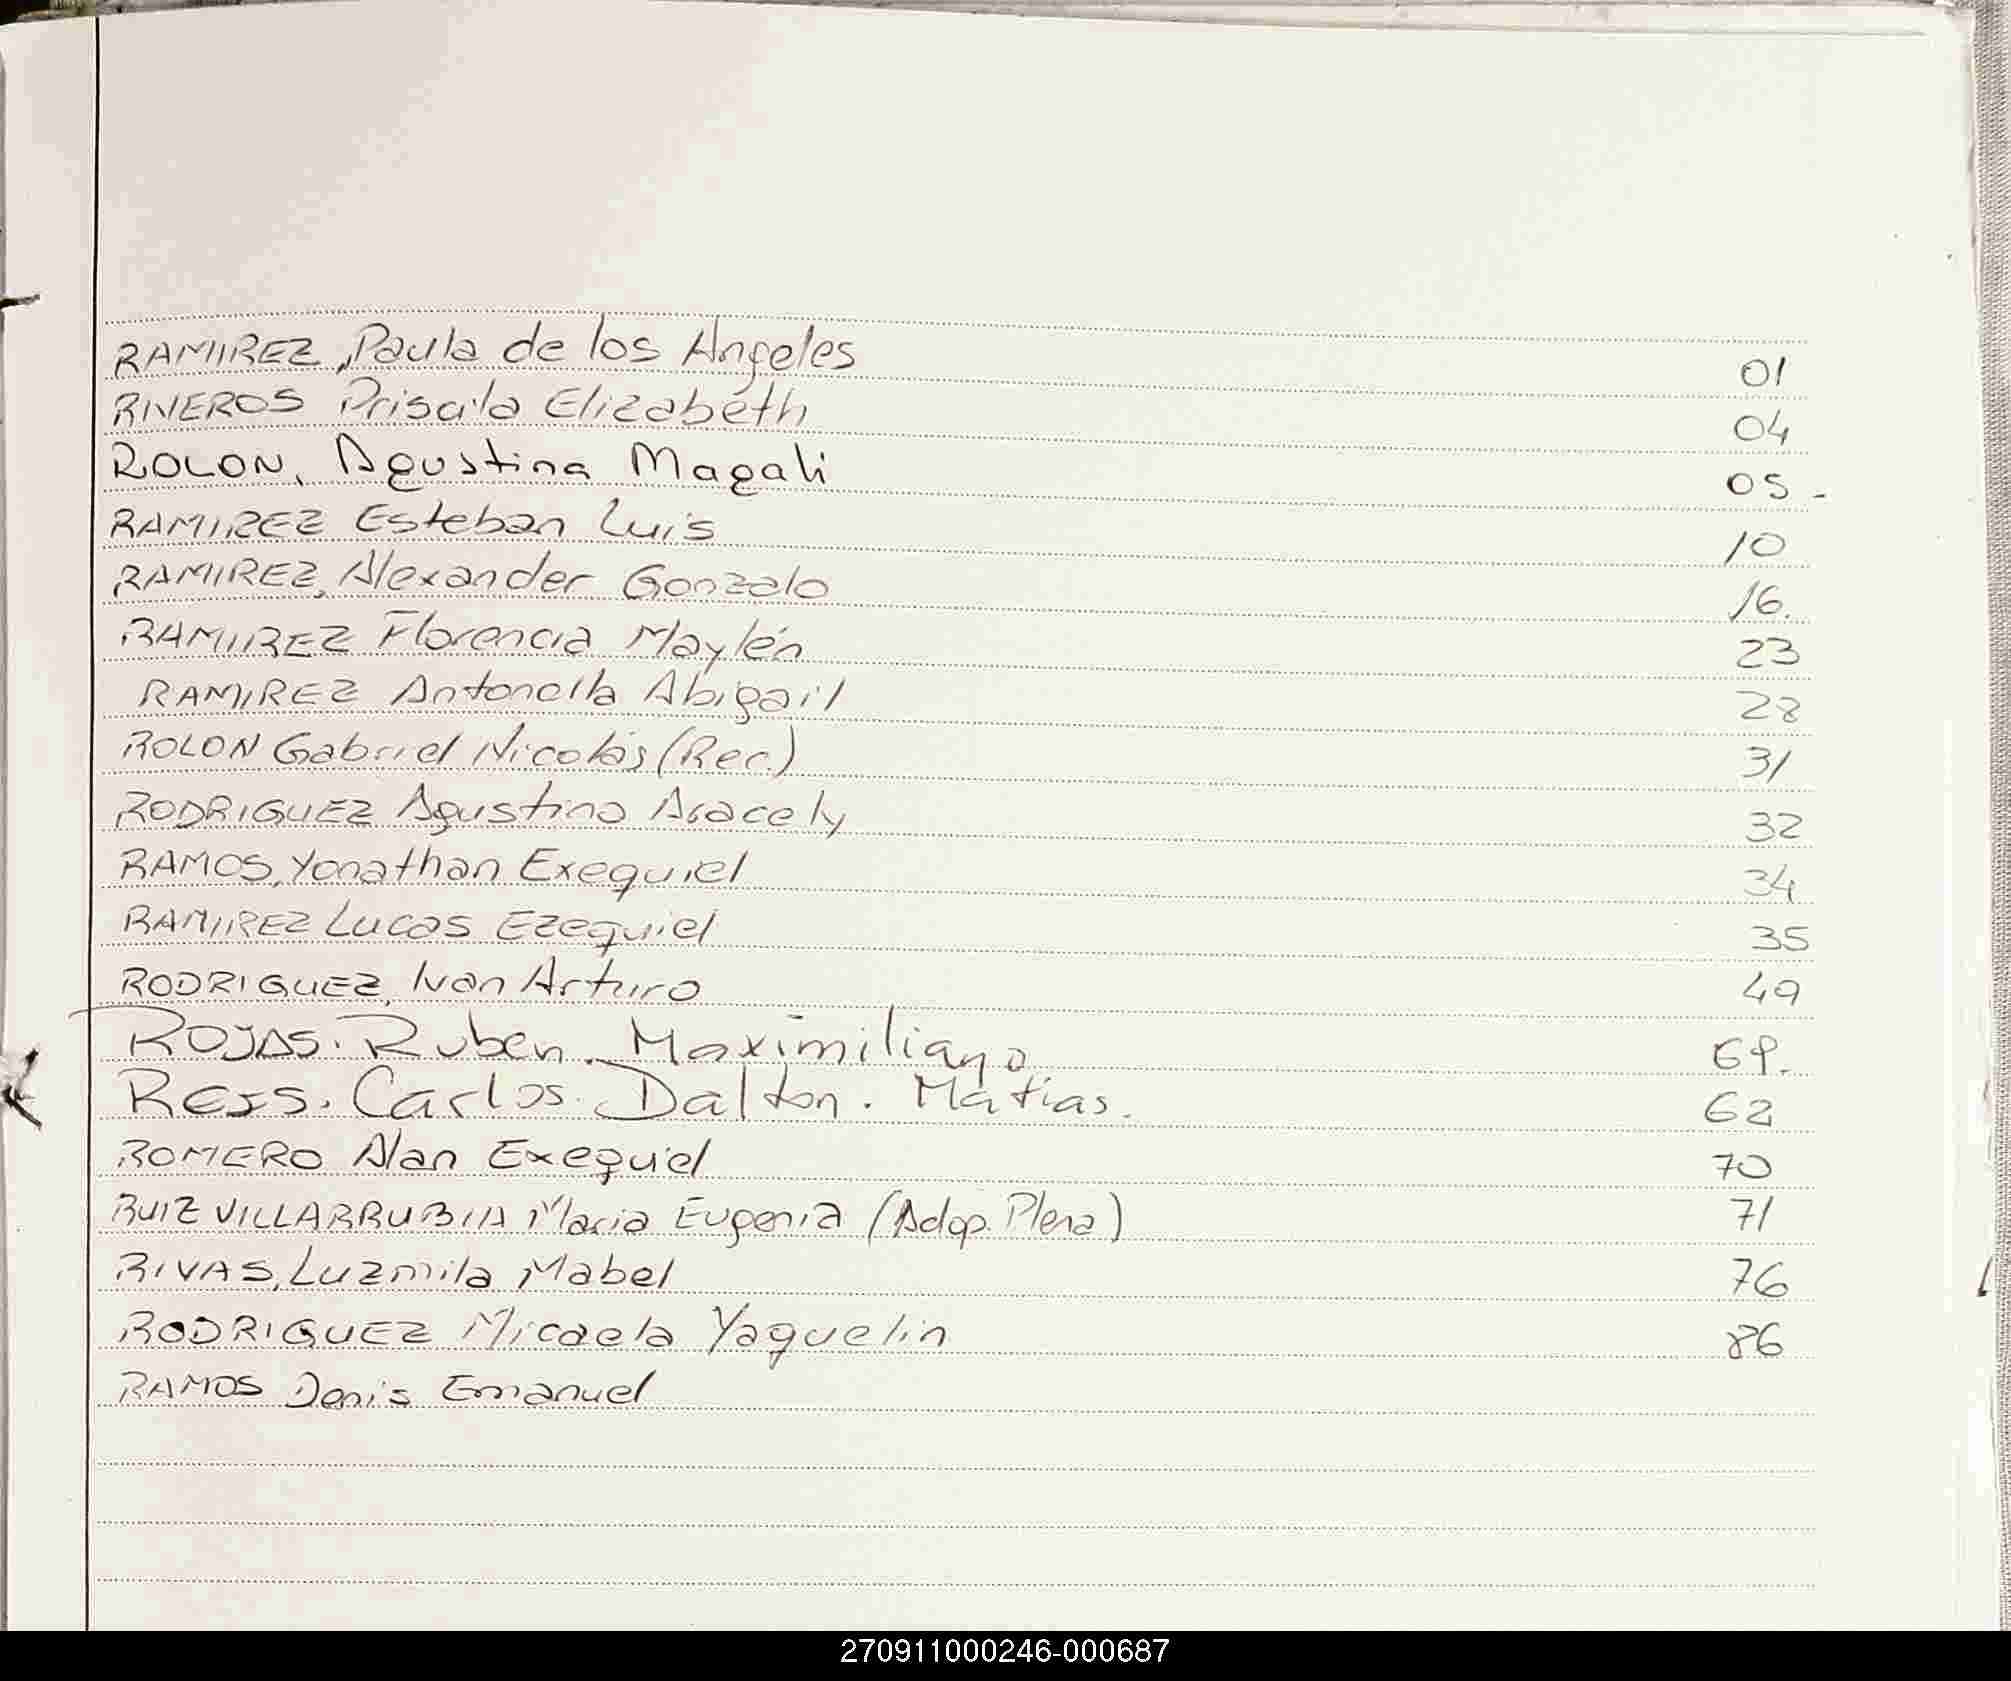 RAMIREZ, Paula de los Angeles 01
RIVEROS Priscila Elizabéth 04
ROLON, Agustina Magali 05 -
RAMIREZ Esteban Luis 10
RAMIREZ, Alexander Gonzalo 16.
RAMIREZ Florencia Maylén 23
RAMIREZ Antonella Abigail 28
ROLON Gabriel Nicolás (Rec.) 31
RODRIGUEZ Agustina Aracely 32
RAMOS, Yonathan Exequiel 34
RAMIREZ Lucas Ezequiel 35
RODRIGUEZ, Ivan Arturo 49
ROJAS. Ruben. Maximiliano 69.
REIS. Carlos. Dalton. Matias. 62
ROMERO Alan Exequiel 70
RUIZ VILLARRUBIA Maria Eugenia (Adop. Plena) 71
RIVAS, Luzmila Mabel 76
RODRIGUEZ Micaela Yaquelin 86
RAMOS Denis Emanuel
270911000246-000687